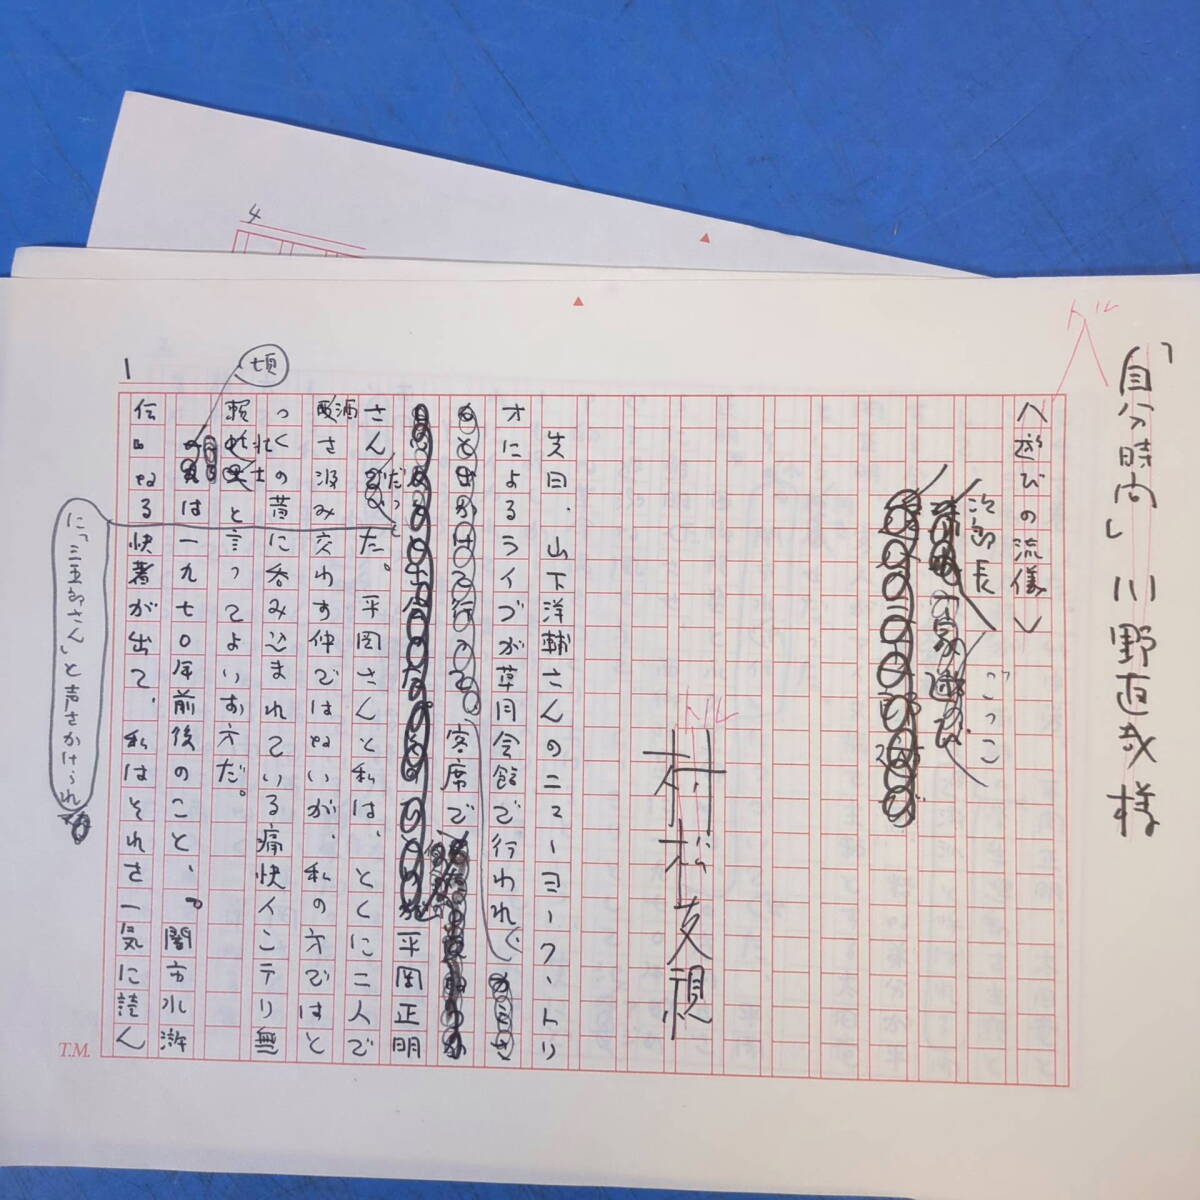 「自分時間」川野直哉様
トル
〈遊びの流儀〉
次郎長
「ごっこ
トル
村松友視
先日、山下洋輔さんのニューヨーク・トリ
オによるライブが草月会館で行われ
客席で
平岡正明
さんだった。平岡さんと私は、とくに二人で
酒さ汲み交わす仲ではないが、私の方ではと
っくの昔に呑み込まれている痛快インテリ無
頼壮士と言ってよいお方だ。
頃は一九七〇年前後のこと、。闇市水滸
伝なる快著が出て、私はそれを一気に読ん
に「三五郎さん」と声をかけられ
1
4
T.M.